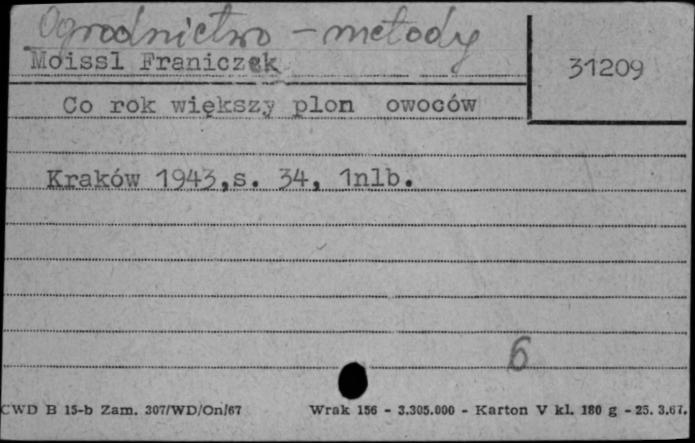 Ogrodnictwo - metody
Moissl Franiczek
31209
Co rok większy plon owoców
Kraków 1943,s. 34, 1nlb.
6
CWD B 15-b Zam. 307/WD/On/67 Wrak 156 - 3.305.000 - Karton V kl. 180 g - 25. 3.67.